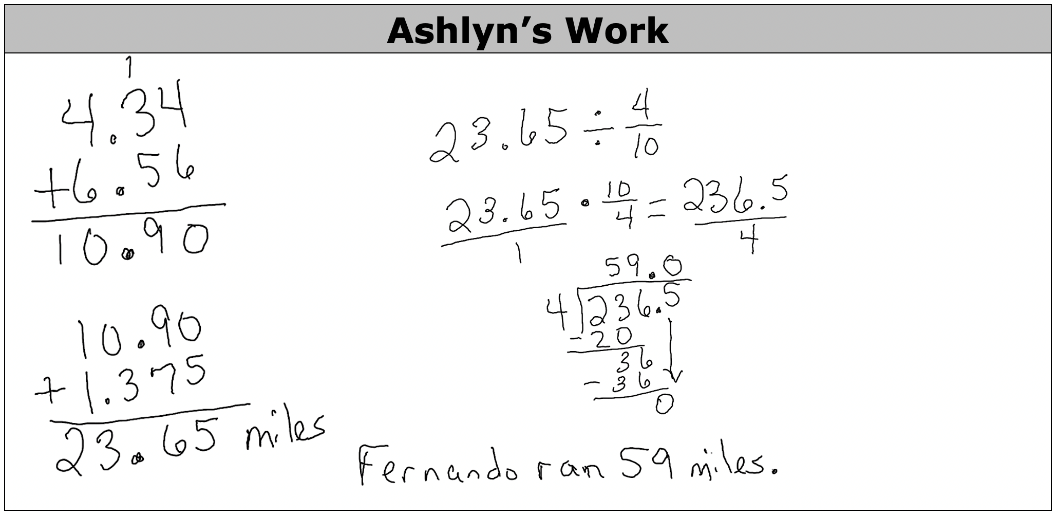 Ashlyn's Work
1
4.34
+6.56
10.90
10.90
+1.375
23.65 miles
23.65 ÷ 4/10
23.65/1 · 10/4 = 236.5/4
59.0
4)236.5
-20
36
-36
0
Fernando ran 59 miles.